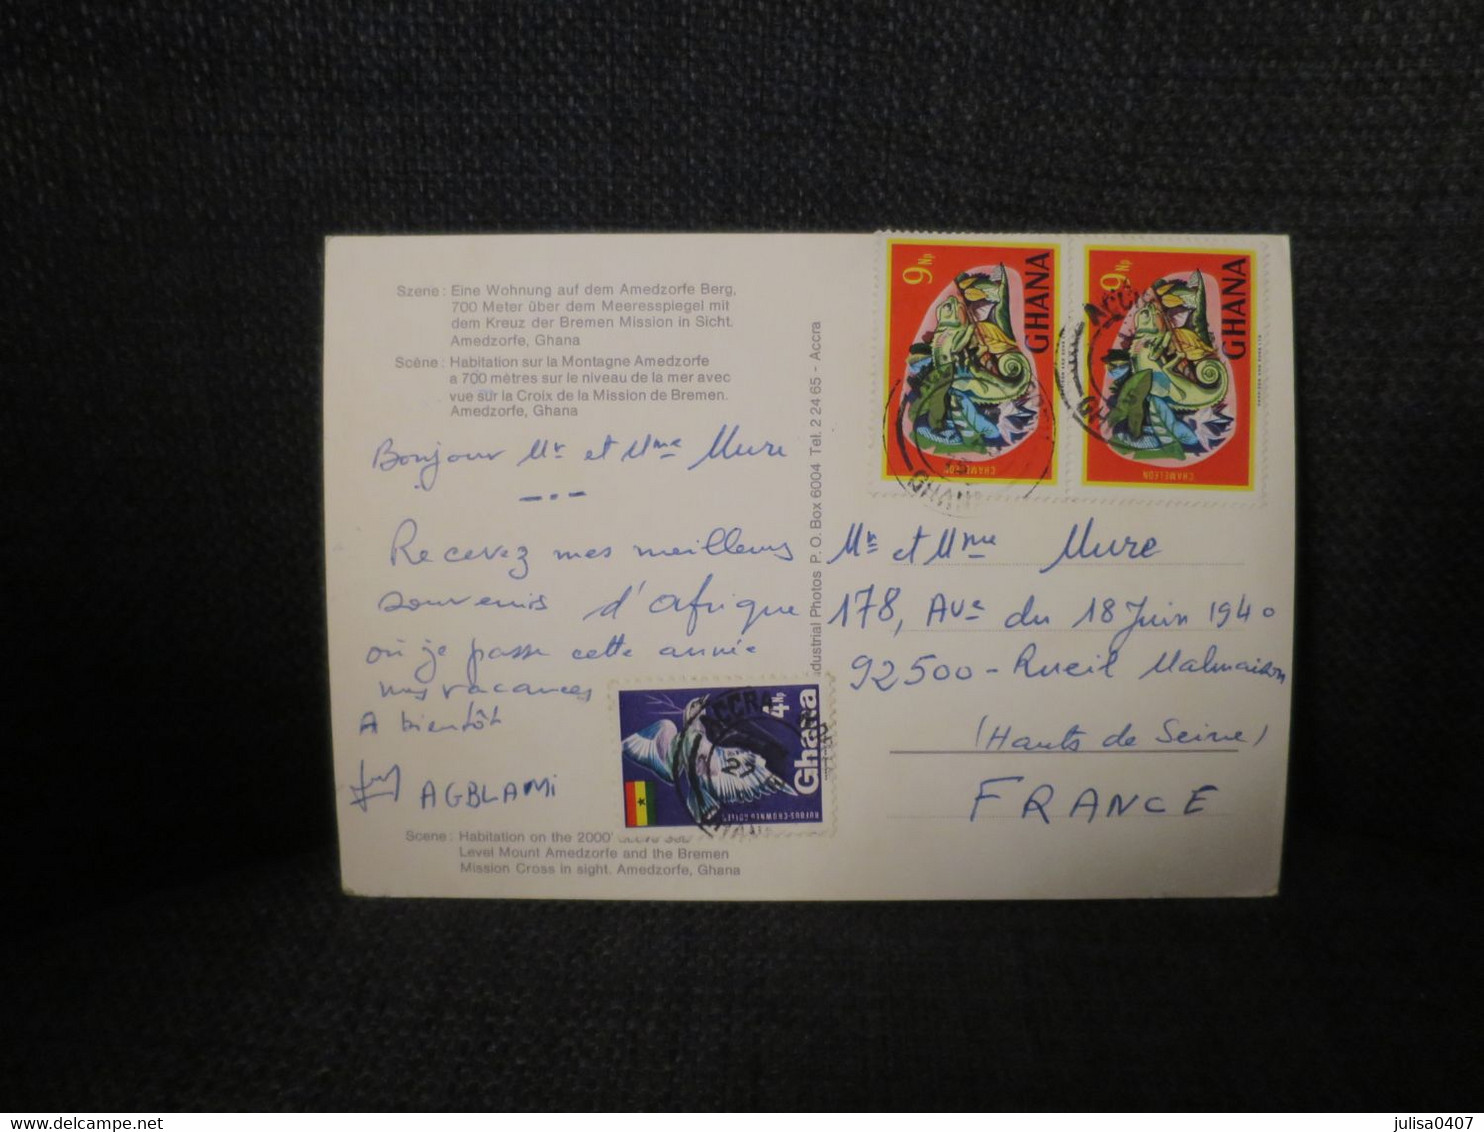 Szene: Eine Wohnung auf dem Amedzorfe Berg,
700 Meter über dem Meeresspiegel mit
dem Kreuz der Bremen Mission in Sicht.
Amedzorfe, Ghana
Scène: Habitation sur la Montagne Amedzorfe
a 700 mètres sur le niveau de la mer avec
vue sur la Croix de la Mission de Bremen.
Amedzorfe, Ghana
Bonjour Mr et Mme Mure
Recevez mes meilleurs
souvenirs d'afrique
où je passe cette année
mes vacances
A bientôt
AGBLAMI
Scene: Habitation on the 2000'
Level Mount Amedzorfe and the Bremen
Mission Cross in sight. Amedzorfe, Ghana
Industrial Photos P. O. Box 6004 Tel. 2 24 65 - Accra
9 Np
GHANA
CHAMELEON
9 Np
GHANA
CHAMELEON
ACCRA
GHANA
4 Np
Ghana
RUFOUS-CROWNED ROLLER
ACCRA
Mr et Mme Mure
178, Ave du 18 Juin 1940
92500 - Rueil Malmaison
(Hauts de Seine)
FRANCE
julisa0407